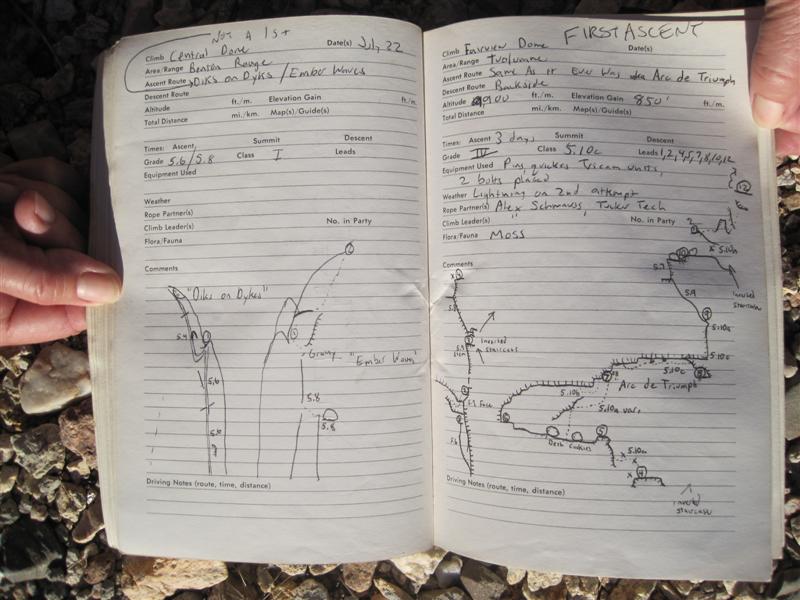 NOT A 1st
Climb Central Dome Date(s) July 22
Area/Range Benton Range
Ascent Route Diks on Dykes / Ember Waves
Descent Route
Altitude ft./m. Elevation Gain ft./m.
Total Distance mi./km. Map(s)/Guide(s)
Times: Ascent Summit Descent
Grade 5.6/5.8 Class I Leads
Equipment Used
Weather
Rope Partner(s) No. in Party
Climb Leader(s)
Flora/Fauna
Comments
"Diks on Dykes"
5.4
5.6
"Ember Waves"
5.8
5.8
Driving Notes (route, time, distance)
FIRST ASCENT
Climb Fairview Dome Date(s)
Area/Range Tuolumne
Ascent Route Same As It Ever Was aka Arc de Triumph
Descent Route Backside
Altitude 9900 ft./m. Elevation Gain 850' ft./m.
Total Distance mi./km. Map(s)/Guide(s)
Times: Ascent 3 days Summit Descent
Grade IV Class 5.10c Leads 1,2,4,5,7,8,10,12
Equipment Used Pins, quickies Tricam units,
2 bolts placed
12
Weather Lightning on 2nd attempt
Rope Partner(s) Alex Schmauss, Tucker Tech
Climb Leader(s) " No. in Party
Flora/Fauna Moss
5.10a
Comments
5.7
Inverted Staircase
5.9
9
5.10a
Inverted Staircase
5.10c
5.10c
Arc de Triumph
5.10b
5.10a var.
Death Cookies
5
5.10a
4
Inverted Staircase
Driving Notes (route, time, distance)